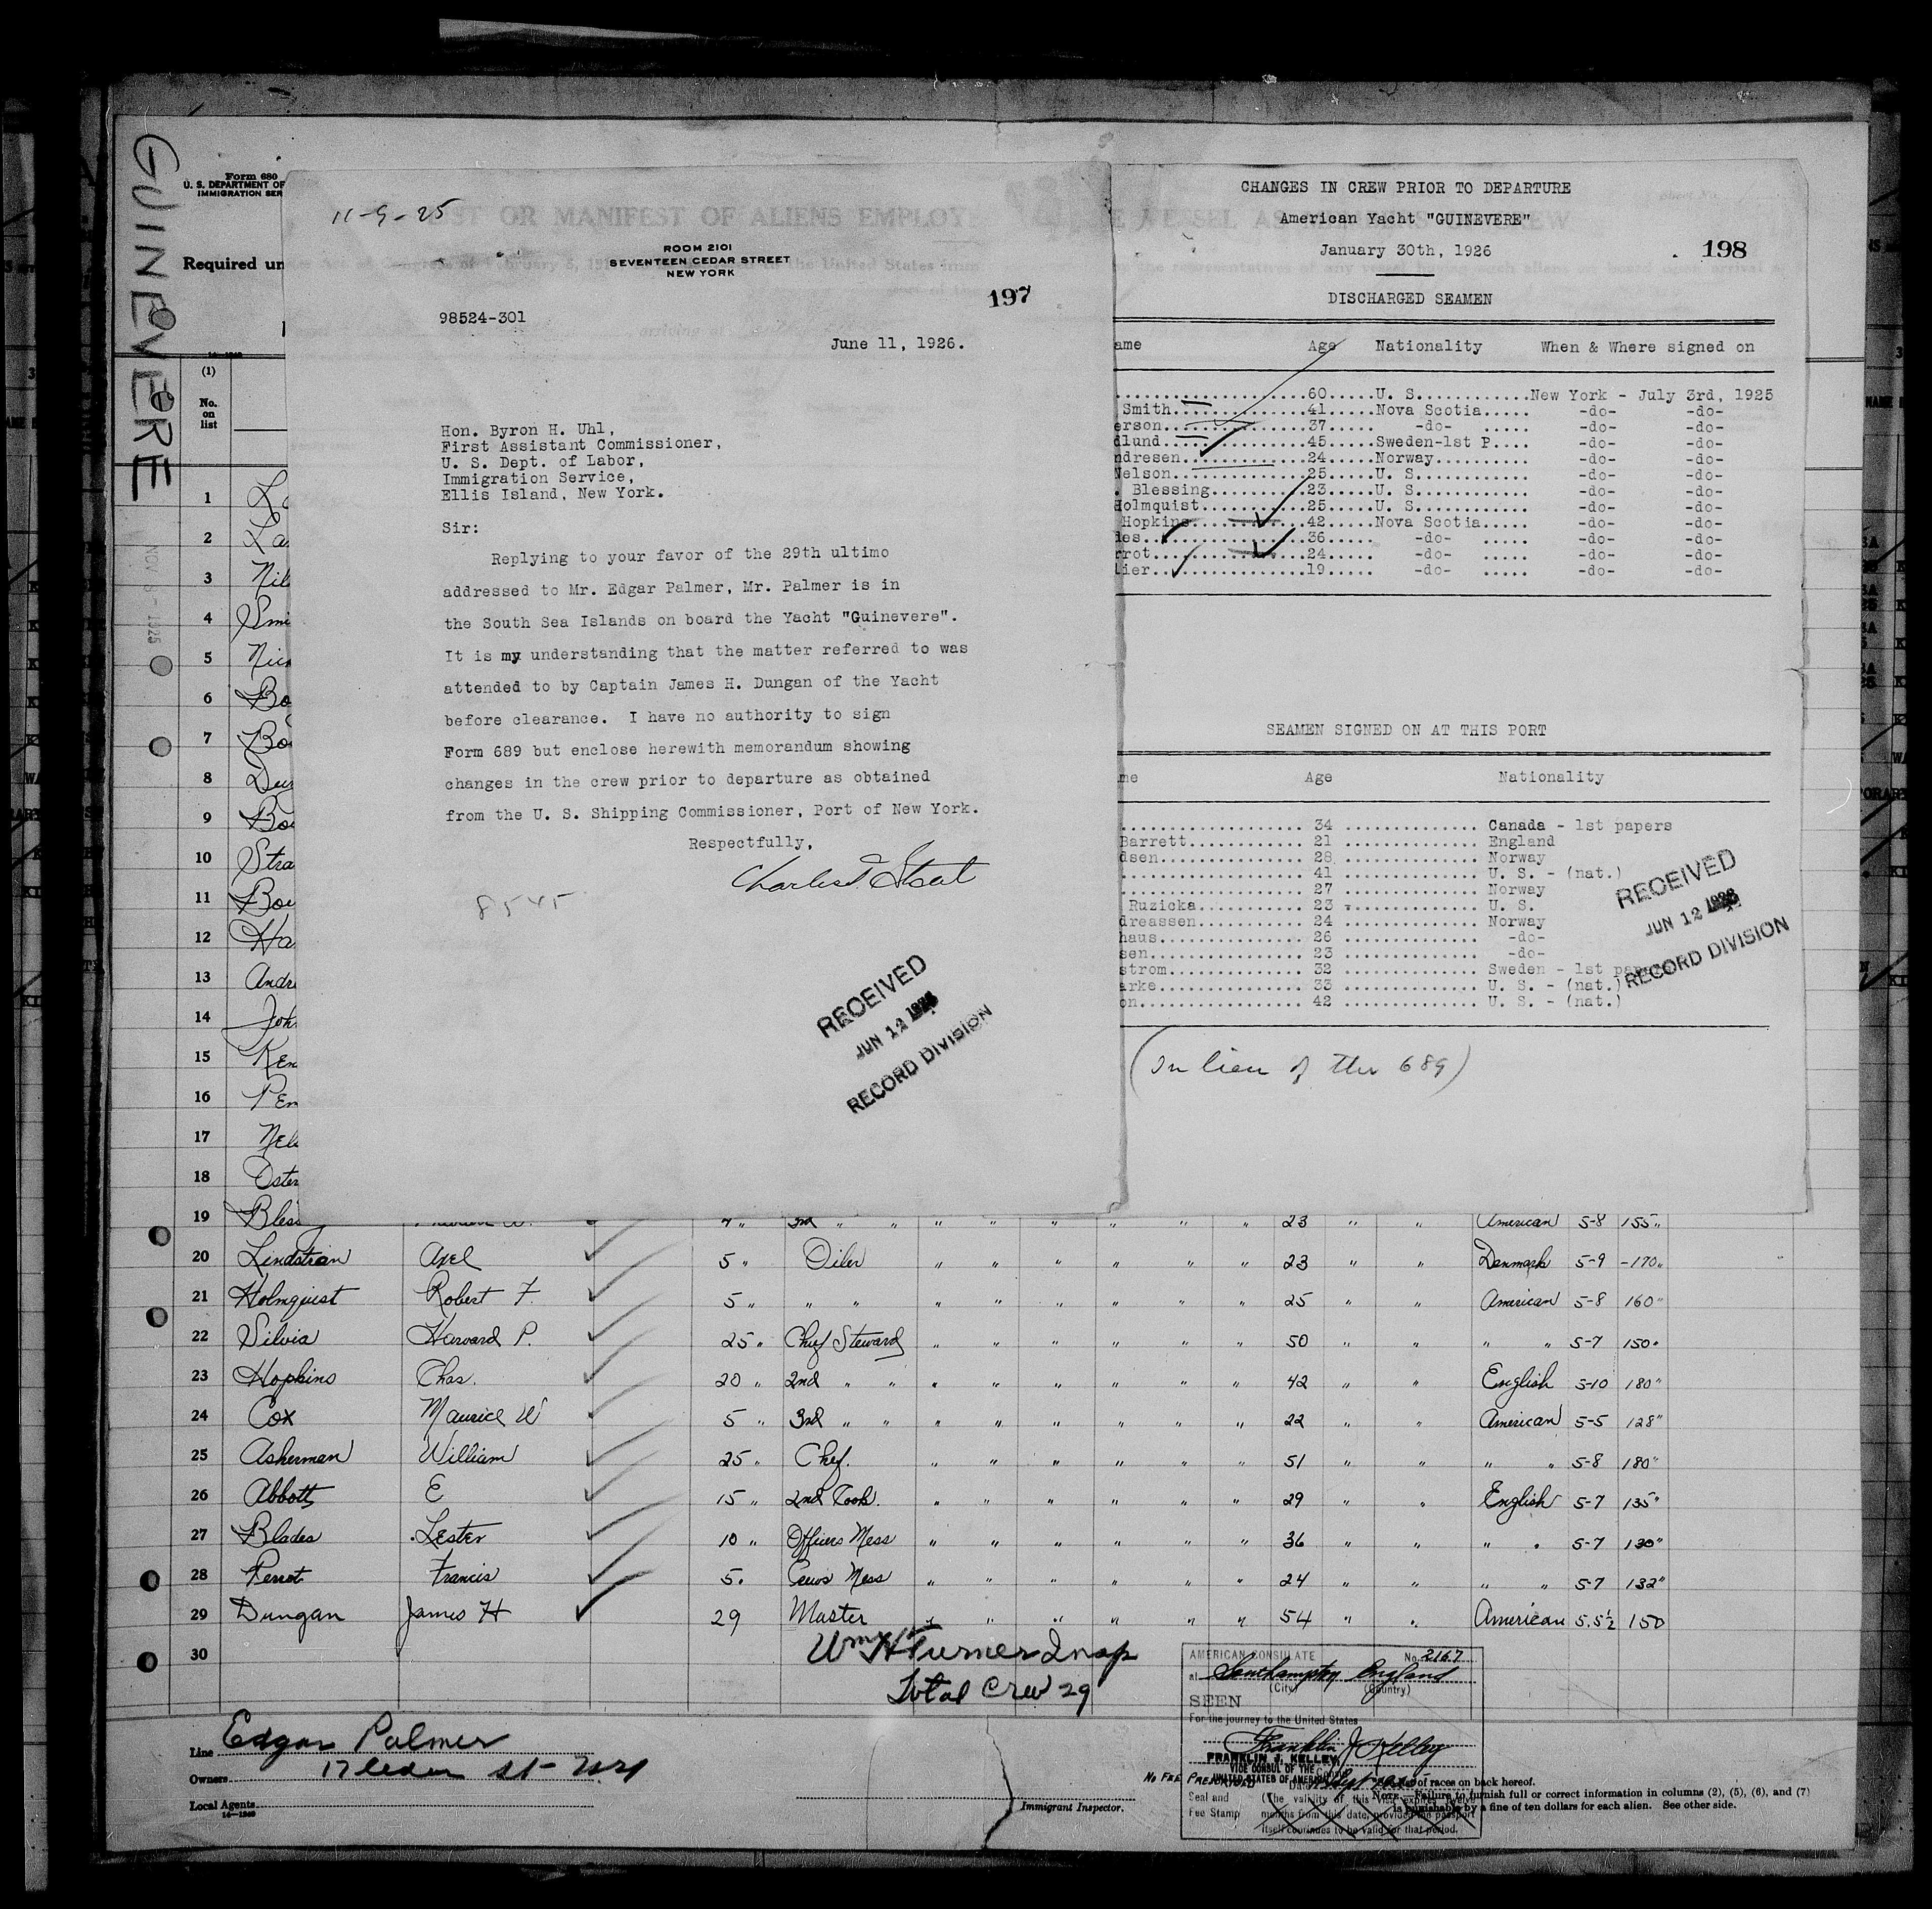 GUINEVERE
NOV 8 - 1925
Form 680
U. S. DEPARTMENT OF
IMMIGRATION SER
Required un
11-9-25
ROOM 2101
SEVENTEEN CEDAR STREET
NEW YORK
197
98524-301
June 11, 1926.
Hon. Byron H. Uhl,
First Assistant Commissioner,
U. S. Dept. of Labor,
Immigration Service,
Ellis Island, New York.
Sir:
Replying to your favor of the 29th ultimo
addressed to Mr. Edgar Palmer, Mr. Palmer is in
the South Sea Islands on board the Yacht "Guinevere".
It is my understanding that the matter referred to was
attended to by Captain James H. Dungan of the Yacht
before clearance. I have no authority to sign
Form 689 but enclose herewith memorandum showing
changes in the crew prior to departure as obtained
from the U. S. Shipping Commissioner, Port of New York.
Respectfully,
8545
RECEIVED
JUN 12 1926
RECORD DIVISION
CHANGES IN CREW PRIOR TO DEPARTURE
American Yacht "GUINEVERE"
January 30th, 1926
198
DISCHARGED SEAMEN
ame Age Nationality When & Where signed on
60 U. S. New York - July 3rd, 1925
Smith 41 Nova Scotia -do- -do-
erson 37 -do- -do- -do-
dlund 45 Sweden-1st P. -do- -do-
ndresen 24 Norway -do- -do-
Nelson 25 U. S. -do- -do-
. Blessing 23 U. S. -do- -do-
Holmquist 25 U. S. -do- -do-
Hopkins 42 Nova Scotia -do- -do-
des 36 -do- -do- -do-
rrot 24 -do- -do- -do-
lier 19 -do- -do- -do-
SEAMEN SIGNED ON AT THIS PORT
me Age Nationality
34 Canada - 1st papers
Barrett 21 England
dsen 28 Norway
41 U. S. - (nat.)
27 Norway
Ruzicka 23 U. S.
dreassen 24 Norway
haus 26 -do-
sen 23 -do-
strom 32 Sweden - 1st papers
arke 33 U. S. - (nat.)
on 42 U. S. - (nat.)
RECEIVED
JUN 12 1926
RECORD DIVISION
(In lieu of the 689)
(1)
No.
on
list
1 La
2 La
3 Nil
4 Smi
5 Nic
6 Bo
7 Bo
8 Du
9 Bo
10 Stra
11 Bou
12 Ha
13 Andr
14 Joh
15 Ken
16 Pen
17 Nel
18 Oster
19 Bless 4 " 3rd " " " " " " " " 23 " " American 5-8 155 "
20 Lindstrian Axel 5 " Oiler " " " " " " 23 " " Denmark 5-9 -170 "
21 Holmquist Robert F. 5 " " " " " " " " " 25 " " American 5-8 160 "
22 Silvia Harvard P. 25 " Chief Steward " " " " " " 50 " " " " 5-7 150 "
23 Hopkins Chas. 20 " 2nd " " " " " " " " 42 " " English 5-10 180 "
24 Cox Maurice W 5 " 3rd " " " " " " " " 22 " " American 5-5 128 "
25 Asherman William 25 " Chef. " " " " " " 51 " " " " 5-8 180 "
26 Abbott E 15 " 2nd Cook. " " " " " " 29 " " English 5-7 135 "
27 Blades Lester 10 " Officers Mess " " " " " " 36 " " " " 5-7 130 "
28 Perrot Francis 5 " Crews Mess " " " " " " 24 " " " " 5-7 132 "
29 Dungan James H 29 Master " " " " " " 54 " " American 5.5½ 150
30
Wm H Turner Insp
Total Crew 29
Line Edgar Palmer
Owners 17 Cedar St - N.Y.
Local Agents
14-1240
Immigrant Inspector.
AMERICAN CONSULATE No. 2167
at Southampton England
(City) (Country)
SEEN
For the journey to the United States
Franklin J. Kelley
FRANKLIN J. KELLEY
VICE CONSUL OF THE
UNITED STATES OF AMERICA
NO FEE PRESCRIBED
Seal and
Fee Stamp
(The validity of this visa expires twelve
months from this date, provided the passport
itself continues to be valid for that period.
of races on back hereof.
NOTE.—Failure to furnish full or correct information in columns (2), (5), (6), and (7)
is punishable by a fine of ten dollars for each alien. See other side.